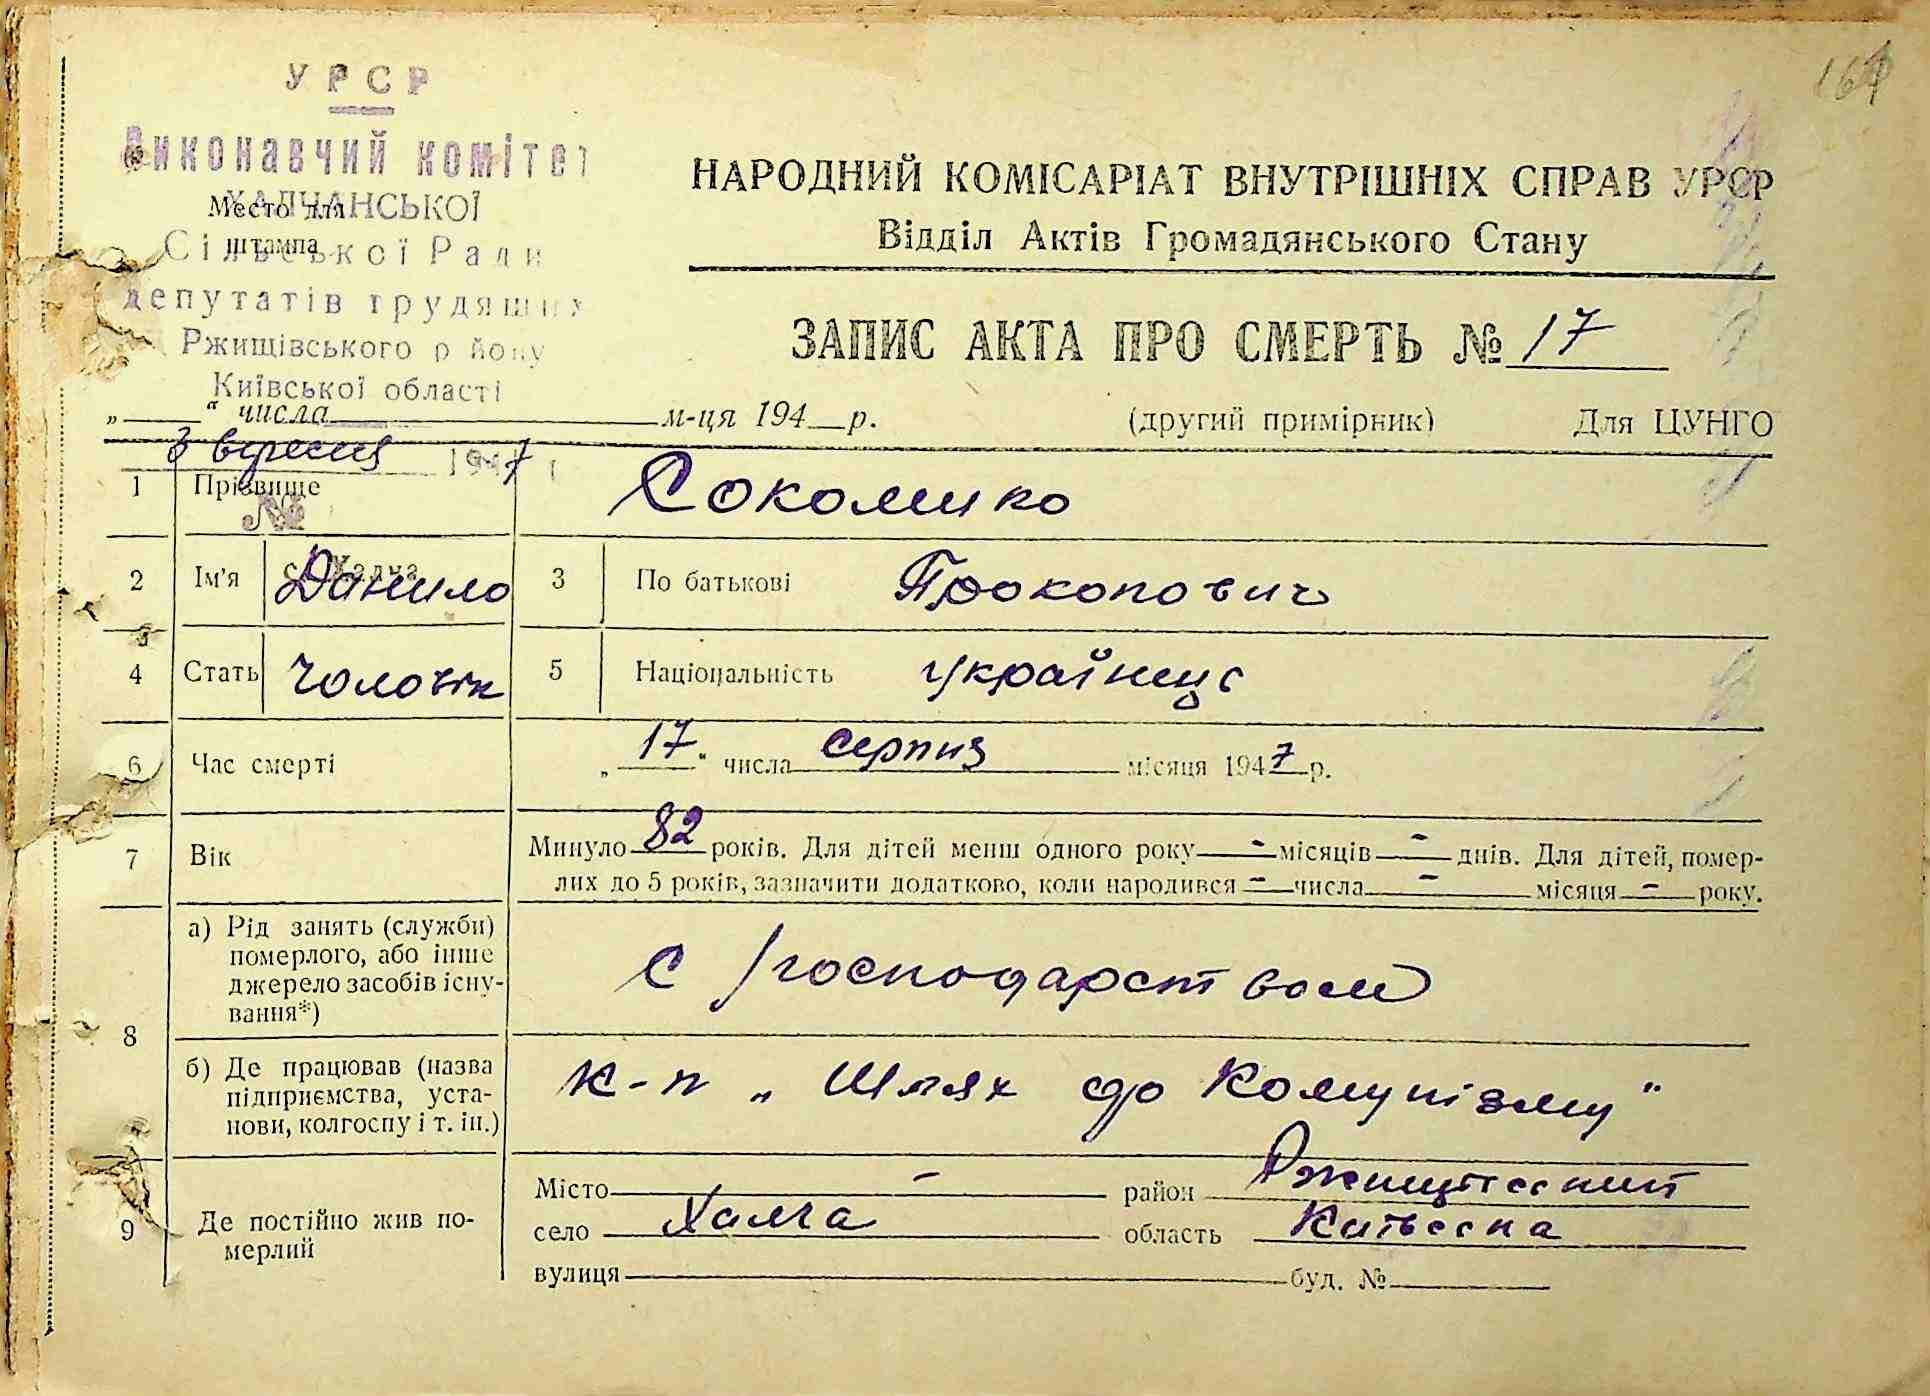 164
УРСР
Виконавчий комітет
ХАЛЧАНСЬКОЇ
Место для
штампа
Сільської Ради
депутатів трудящих
Ржищівського району
Київської області
НАРОДНИЙ КОМІСАРІАТ ВНУТРІШНІХ СПРАВ УРСР
Відділ Актів Громадянського Стану
ЗАПИС АКТА ПРО СМЕРТЬ № 17
„ “ числа м-ця 194 р. (другий примірник) Для ЦУНГО
3 вересня 1947
№
с. Халча
1 Прізвище Соколико
2 Ім’я Данило 3 По батькові Прокопович
4 Стать чоловік 5 Національність українець
6 Час смерті „17“ числа серпня місяця 1947 р.
7 Вік Минуло 82 років. Для дітей менш одного року - місяців - днів. Для дітей, помер-
лих до 5 років, зазначити додатково, коли народився - числа - місяця - року.
8 а) Рід занять (служби)
померлого, або інше
джерело засобів існу-
вання*)
с/господарством
б) Де працював (назва
підприємства, уста-
нови, колгоспу і т. ін.)
к-п „Шлях до Комунізму“
9 Де постійно жив по-
мерлий
Місто - район Ржищівский
село Халча область Київська
вулиця буд. №